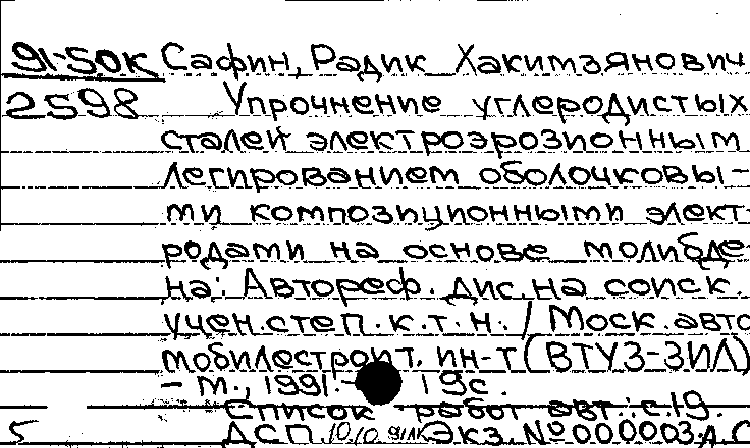 91-50К Сафин, Радик Хакимзянович
2598 Упрочнение углеродистых
сталей электроэрозионным
легированием оболочковы-
ми композиционными элект-
родами на основе молибде
на: Автореф. дис. на соиск.
учен. степ. к.т.н. / Моск. авто
мобилестроит. ин-т (ВТУЗ-ЗИЛ)
- М., 1991. - 19с.
Список работ авт.: с.19.
5 ДСП Экз. № 000003